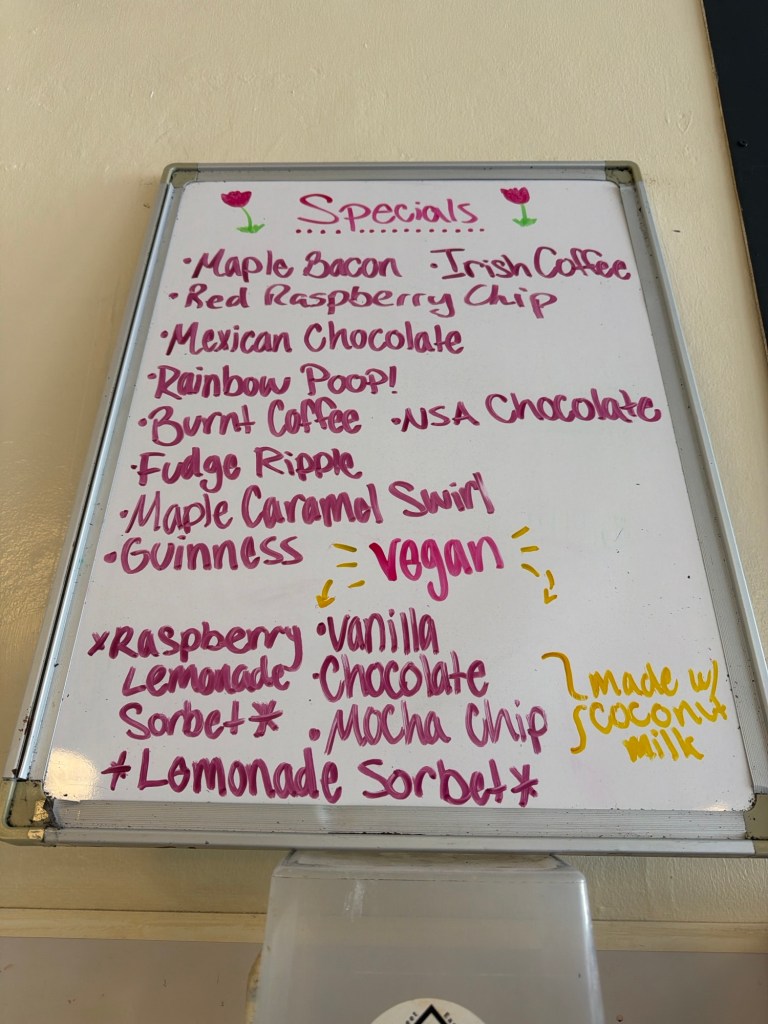 Specials
• Maple Bacon • Irish Coffee
• Red Raspberry Chip
• Mexican Chocolate
• Rainbow Poop!
• Burnt Coffee • NSA Chocolate
• Fudge Ripple
• Maple Caramel Swirl
• Guinness
vegan
*Raspberry
Lemonade
Sorbet*
• Vanilla
• Chocolate
• Mocha Chip
made w/
coconut
milk
*Lemonade Sorbet*